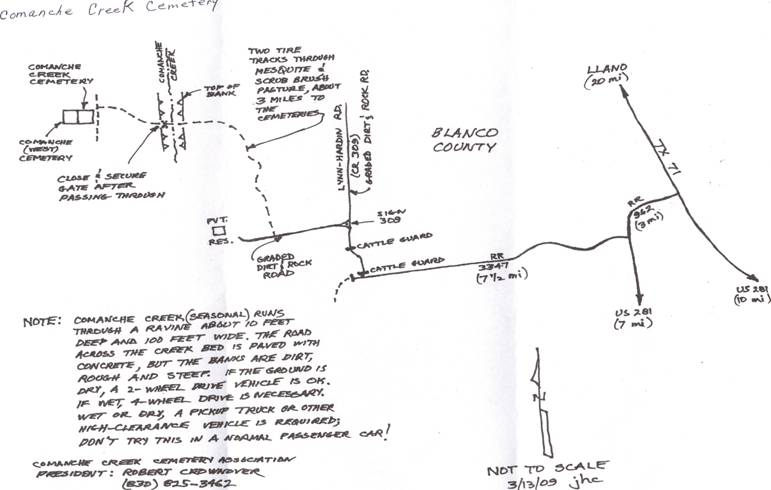 Comanche Creek Cemetery
COMANCHE
CREEK
CEMETERY
COMANCHE
(WEST)
CEMETERY
COMANCHE
CREEK
TOP OF
BANK
CLOSE & SECURE
GATE AFTER
PASSING THROUGH
TWO TIRE
TRACKS THROUGH
MESQUITE &
SCRUB BRUSH
PASTURE, ABOUT
3 MILES TO
THE
CEMETERIES
LYNN-HARDIN RD.
(CR 309)
GRADED DIRT & ROCK RD.
BLANCO
COUNTY
LLANO
(20 mi)
TX 71
RR
962
(3 mi)
US 281
(10 mi)
US 281
(7 mi)
PVT.
RES.
GRADED
DIRT & ROCK
ROAD
SIGN
309
CATTLE GUARD
CATTLE GUARD
RR
3347
(7 1/2 mi)
NOTE: COMANCHE CREEK (SEASONAL) RUNS
THROUGH A RAVINE ABOUT 10 FEET
DEEP AND 100 FEET WIDE. THE ROAD
ACROSS THE CREEK BED IS PAVED WITH
CONCRETE, BUT THE BANKS ARE DIRT,
ROUGH AND STEEP. IF THE GROUND IS
DRY, A 2-WHEEL DRIVE VEHICLE IS OK.
IF WET, 4-WHEEL DRIVE IS NECESSARY.
WET OR DRY, A PICKUP TRUCK OR OTHER
HIGH-CLEARANCE VEHICLE IS REQUIRED;
DON'T TRY THIS IN A NORMAL PASSENGER CAR!
COMANCHE CREEK CEMETERY ASSOCIATION
PRESIDENT: ROBERT CROWNOVER
(830) 825-3462
N
NOT TO SCALE
3/13/09 jhc